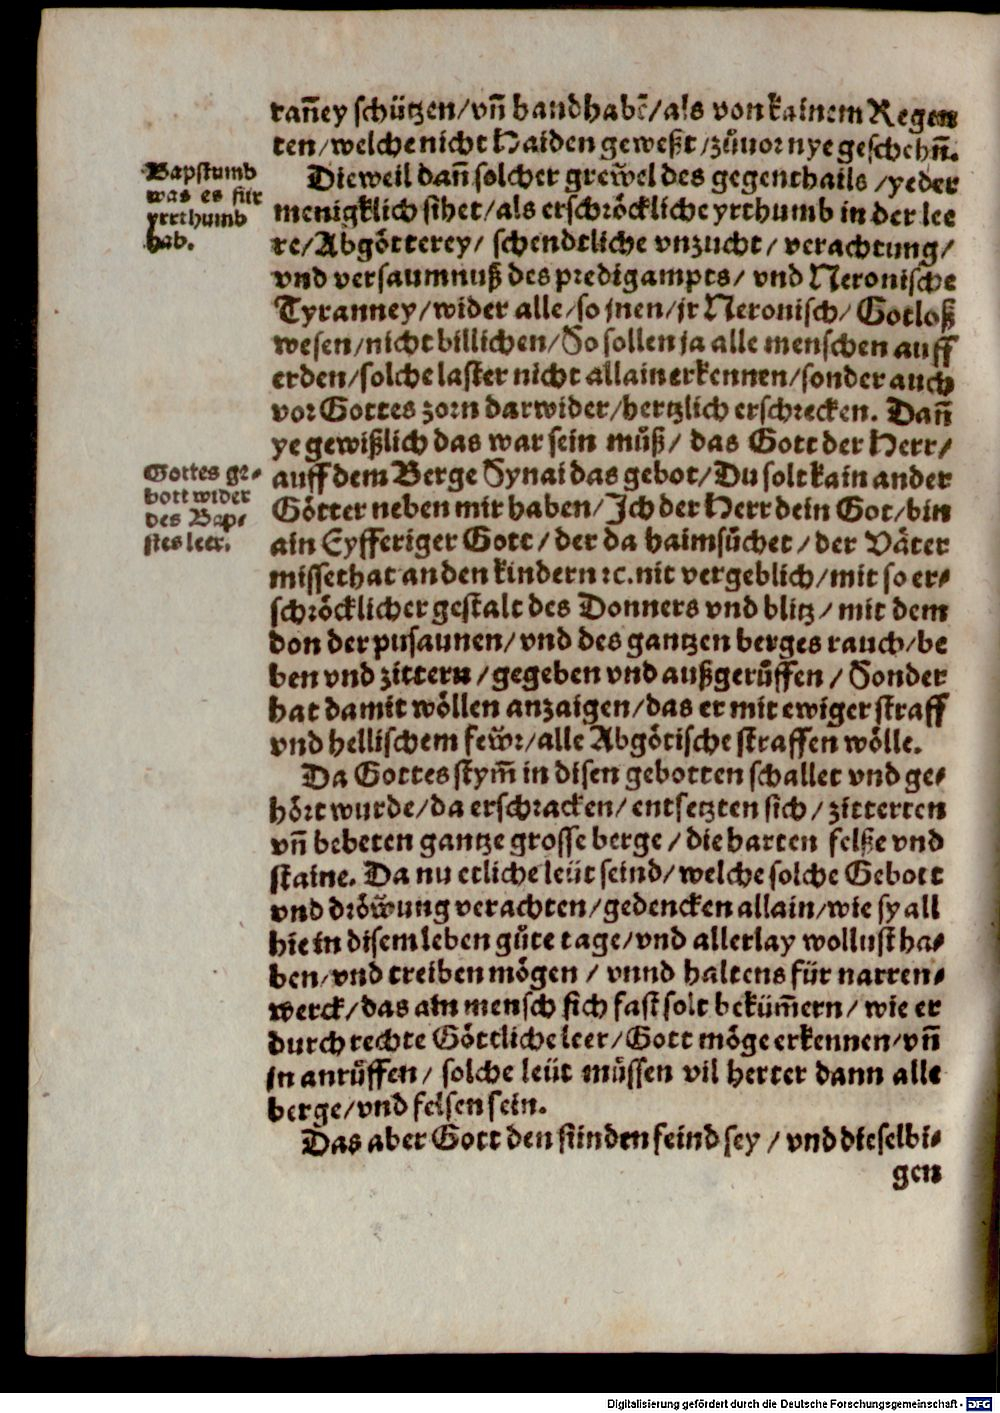 rañey schützen/vñ handhabē/als von kainem Regen
ten/welche nicht Haiden geweßt/zůuor nye geschehñ.
Bapstumb
was es für
yrrthumb
hab.
Dieweil dañ solcher grew̃el des gegenthails/yeder
menigklich sihet/als erschröckliche yrthumb in der lee
re/Abgötterey/ schendtliche vnzucht/ verachtung/
vnd versaumnuß des predigampts/ vnd Neronische
Tyranney/wider alle/so jnen/jr Neronisch/ Gotloß
wesen/nicht billichen/So sollen ja alle menschen auff
erden/solche laster nicht allain erkennen/sonder auch
vor Gottes zorn darwider/hertzlich erschrecken. Dañ
ye gewißlich das war sein můß/ das Gott der Herr/
Gottes ge-
bott wider
des Bap-
stes leer.
auff dem Berge Synai das gebot/Du solt kain ander
Götter neben mir haben/Ich der Herr dein Got/bin
ain Eyfferiger Gott/der da haimsůchet/der Väter
missethat an den kindern ꝛc. nit vergeblich/mit so er-
schröcklicher gestalt des Donners vnd blitz/ mit dem
don der pusaunen/vnd des gantzen berges rauch/be
ben vnd zittern/gegeben vnd außgerůffen/ Sonder
hat damit wöllen anzaigen/das er mit ewiger straff
vnd hellischem few̃r/alle Abgötische straffen wölle.
Da Gottes stym̃ in disen gebotten schallet vnd ge-
hört wurde/da erschracken/entsetzten sich/zitterten
vñ bebeten gantze grosse berge/die harten felße vnd
staine. Da nu etliche leüt seind/welche solche Gebott
vnd dröw̃ung verachten/gedencken allain/wie sy all
hie in disem leben gůte tage/vnd allerlay wollust ha-
ben/vnd treiben mögen/ vnnd haltens für narren-
werck/das ain mensch sich fast solt beküm̃ern/wie er
durch rechte Göttliche leer/Gott möge erkennen/vñ
jn anrůffen/ solche leüt müssen vil herter dann alle
berge/vnd felsen sein.
Das aber Gott den sünden feind sey/vnd dieselbi-
gen
Digitalisierung gefördert durch die Deutsche Forschungsgemeinschaft - DFG